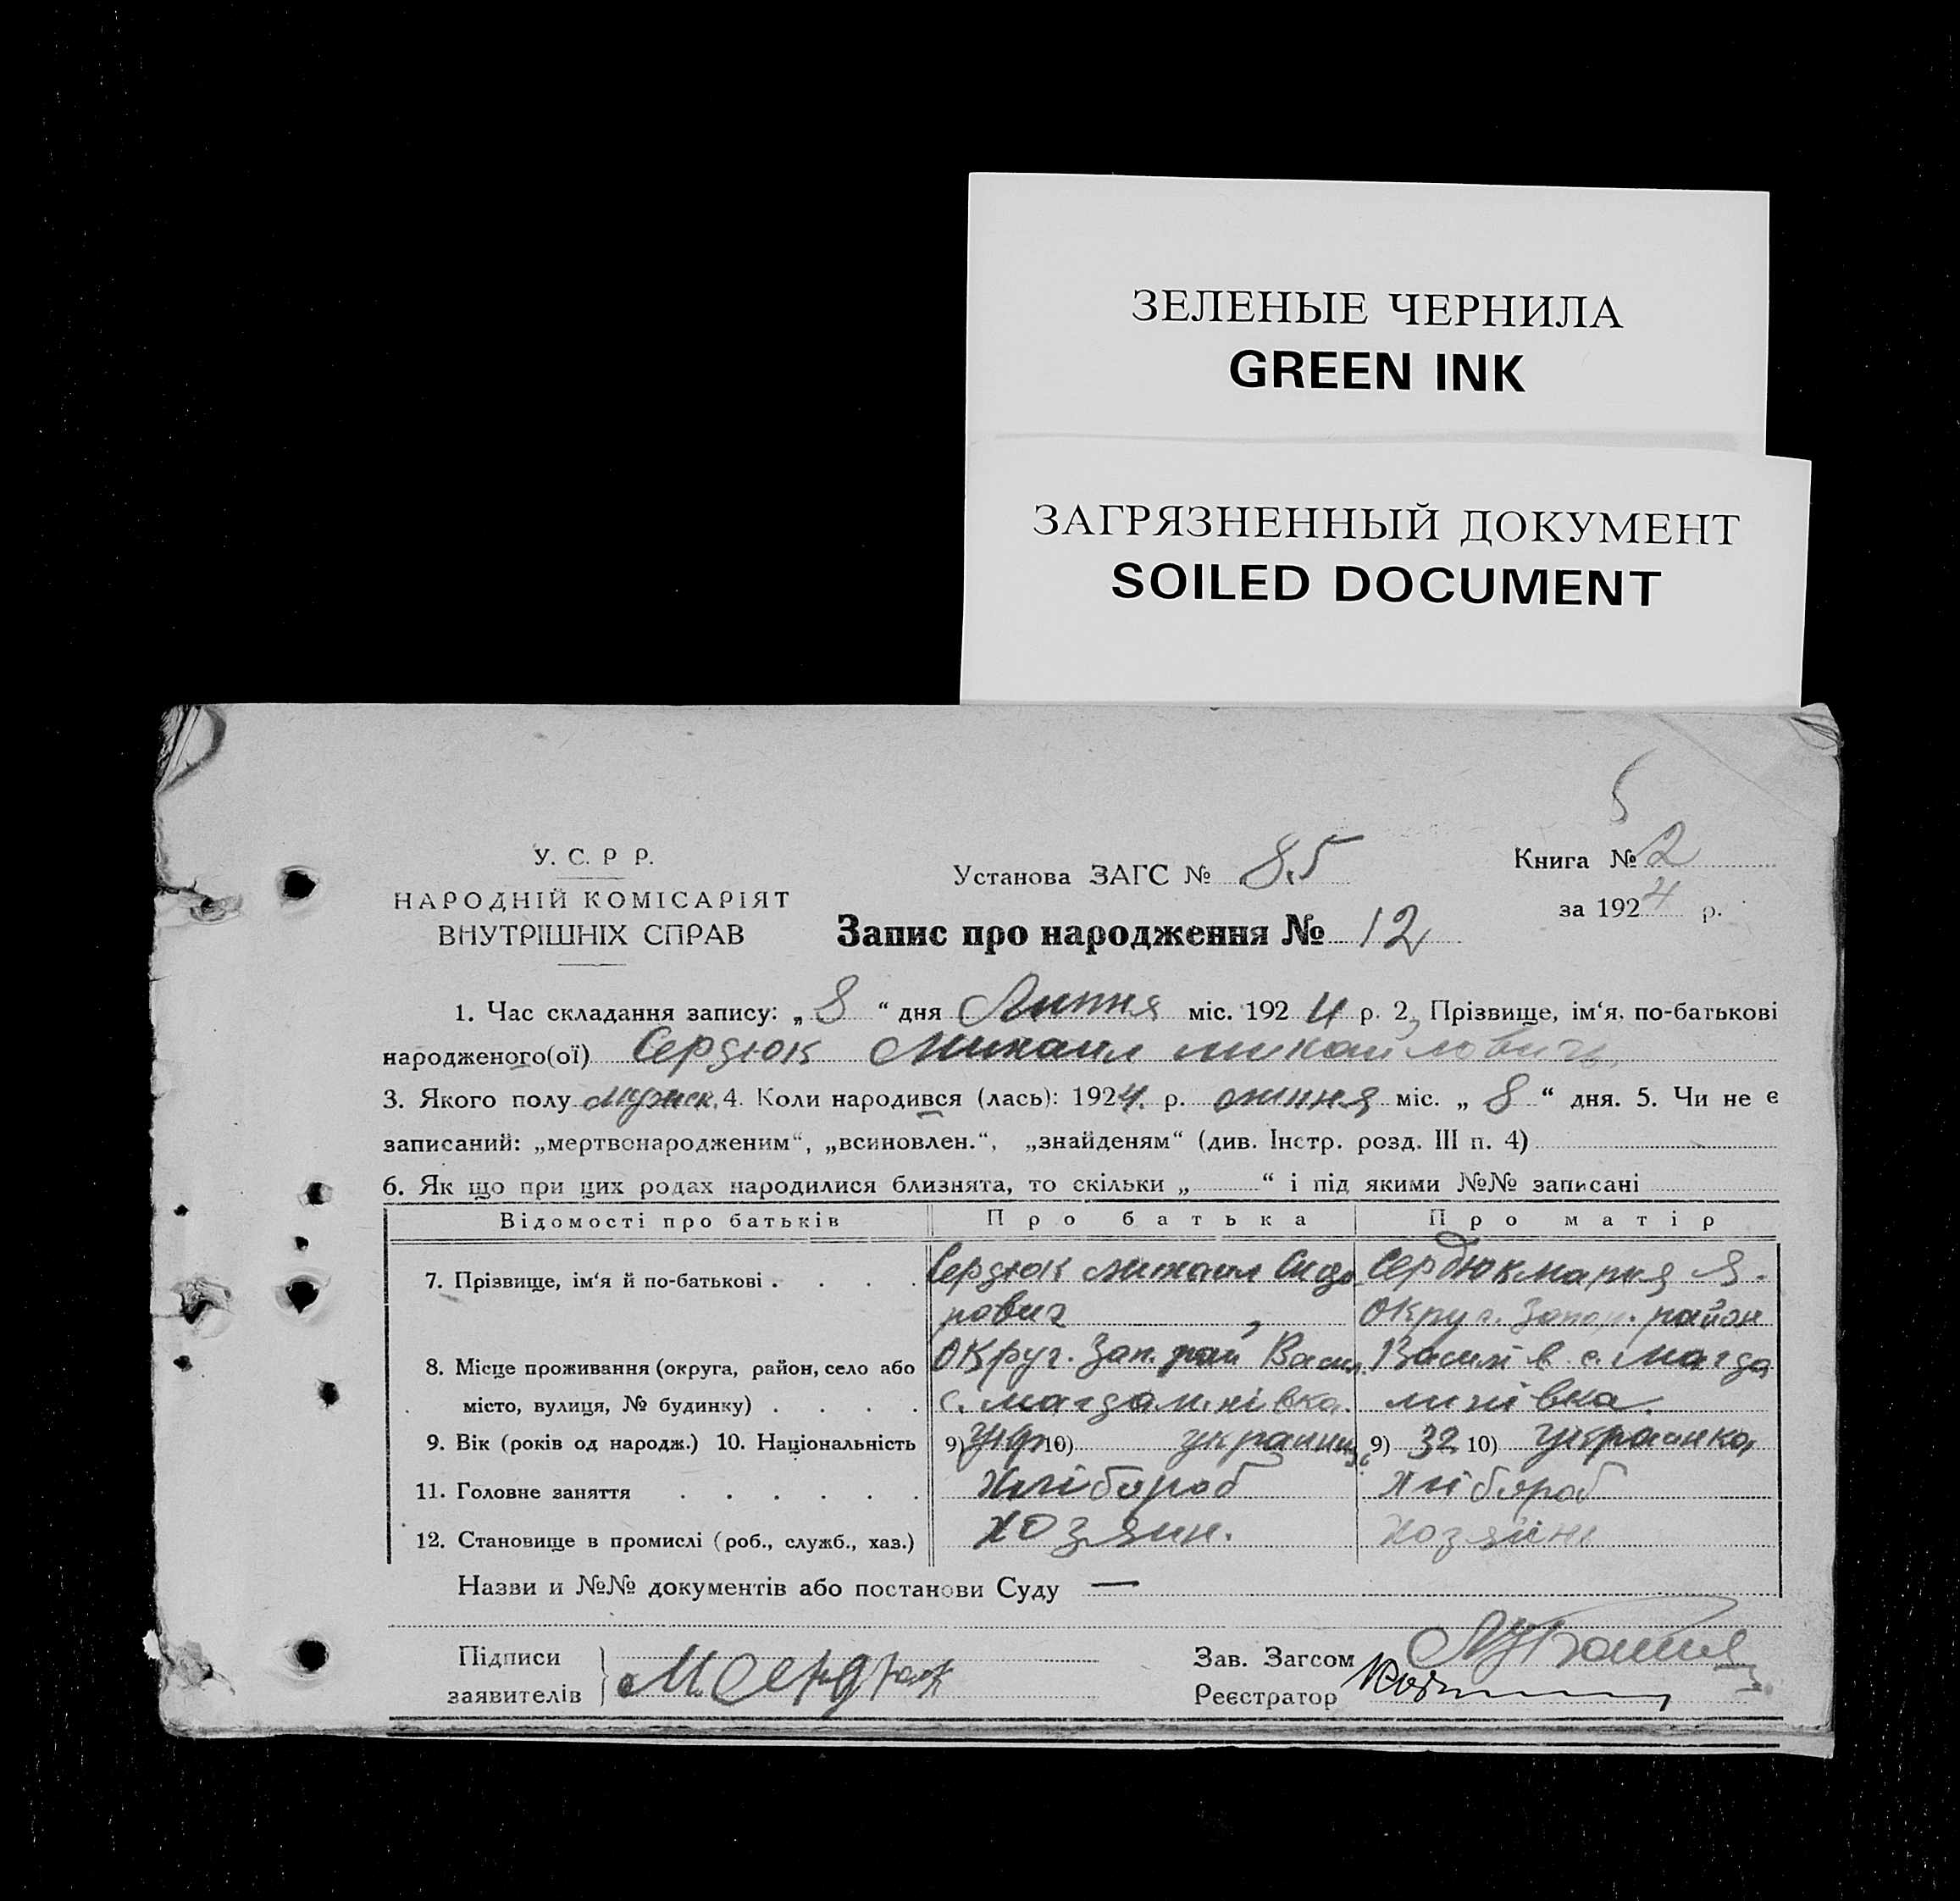 ЗЕЛЕНЫЕ ЧЕРНИЛА
GREEN INK
ЗАГРЯЗНЕННЫЙ ДОКУМЕНТ
SOILED DOCUMENT
5
У. С. Р Р.
НАРОДНІЙ КОМІСАРІЯТ
ВНУТРІШНІХ СПРАВ
Установа ЗАГС № 85
Книга № 2
за 1924 р.
Запис про народження № 12
1. Час складання запису: „ 8 “ дня Липня міс. 1924 р. 2, Прізвище, ім‘я, по-батькові
народженого(ої) Сердюк Михаил михайлович
3. Якого полу мужск. 4. Коли народився (лась): 1924. р. липня міс. „ 8 “ дня. 5. Чи не є
записаний: „мертвонародженим“, „всиновлен.“, „знайденям“ (див. Інстр. розд. III п. 4)
6. Як що при цих родах народилися близнята, то скільки „ “ і під якими №№ записані
Відомості про батьків Про батька Про матір
7. Прізвище, ім‘я й по-батькові . . . . Сердюк михаил Сидо Сердюк мария Я.
рович Округ. Запор. район
8. Місце проживання (округа, район, село або Округ. Зап. рай Васи. Васил в с. Магда
місто, вулиця, № будинку) . . . . с. магдалинівка. линівка.
9. Вік (років од народж.) 10. Національність 9) 10) украинц 9) 32 10) украинка
11. Головне заняття . . . . . . Хлібороб Хлібороб
12. Становище в промислі (роб., служб., хаз.) хозяин.
Назви и №№ документів або постанови Суду —
Підписи
заявителів М Сердюк
Зав. Загсом
Реєстратор